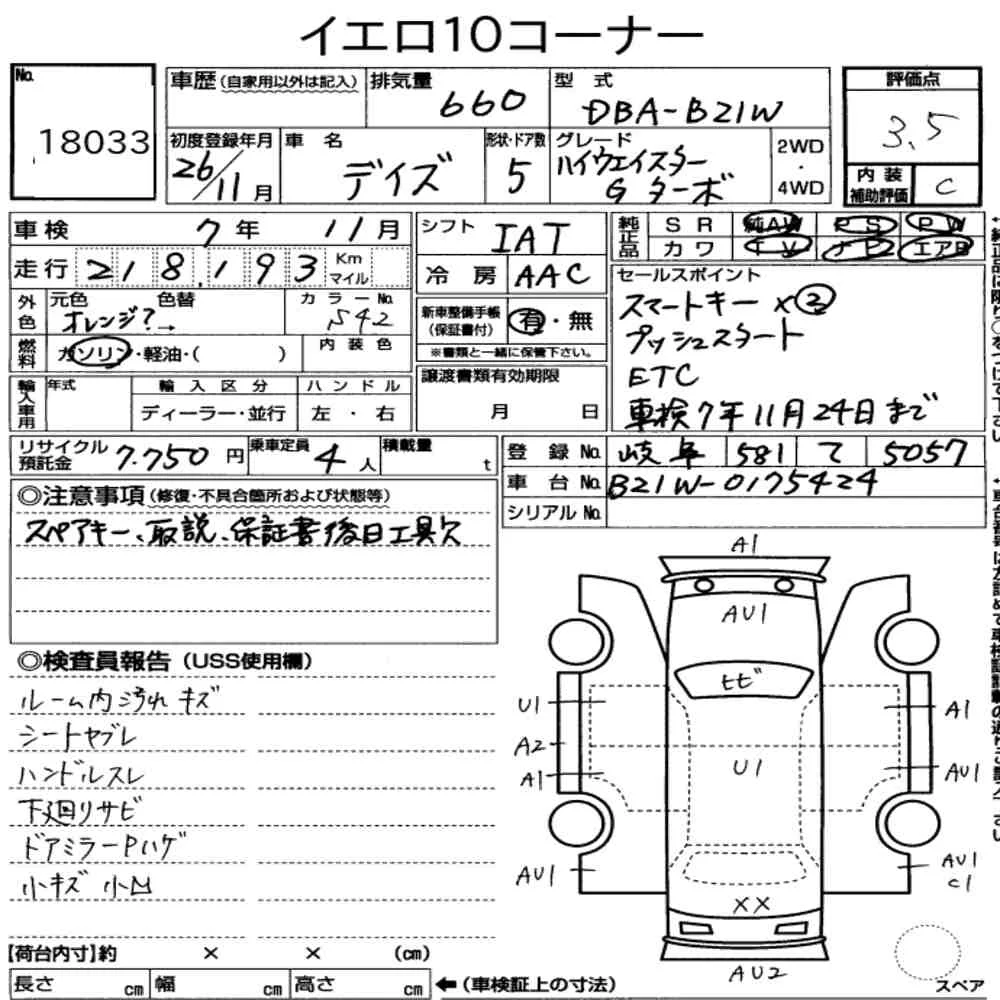 イエロ10コーナー
No. 18033
車歴(自家用以外は記入)
排気量 660
型式 DBA-B21W
評価点 3.5
初度登録年月 26/11月
車名 デイズ
形状・ドア数 5
グレード ハイウェイスター
G ターボ
2WD・4WD
内装補助評価 C
車検 7年 11月
シフト IAT
純正品 SR 純AW PS PW
カワ TV ナビ エアB
走行 218,193 Km マイル
冷房 AAC
セールスポイント
スマートキー×②
プッシュスタート
ETC
車検7年11月24日まで
外色 元色 色替 オレンジ?→
カラーNo. S42
新車整備手帳(保証書付) 有・無
※書類と一緒に保管下さい。
燃料 ガソリン・軽油・( )
内装色
輸入車用 年式 輸入区分 ハンドル
ディーラー・並行 左・右
譲渡書類有効期限
月 日
リサイクル預託金 7.750円
乗車定員 4人
積載量 t
登録No. 岐阜 581 て 5057
車台No. B21W-0175424
シリアルNo.
◎注意事項(修復・不具合箇所および状態等)
スペアキー、取説、保証書後日工具欠
◎検査員報告(USS使用欄)
ルーム内汚れ キズ
シートヤブレ
ハンドルスレ
下廻リサビ
ドアミラーPハゲ
小キズ 小凹
A1
AU1
ヒビ
U1
A1
A2
U1
A1
AU1
AU1
AU1
C1
XX
AU2
スペア
【荷台内寸】約 × × (cm)
長さ cm 幅 cm 高さ cm ←(車検証上の寸法)